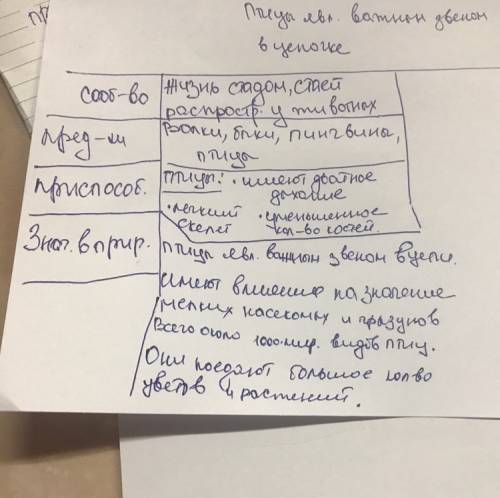 Птицы явл. важным звеном
в цепочке
сооб-во
Жизнь стадом, стаей
распростр. у животных
пред-ли
Волки, быки, пингвины,
птицы
приспособ.
птицы: • имеют двойное
дыхание
• легкий • уменьшенное
скелет кол-во костей.
Знач. в прир.
птицы явл. важным звеном в цепи.
имеют влияние на значение
мелких насекомых и грызунов
Всего около 1000 мир. видов птиц.
Они поедают большое кол-во
цветов и растений.